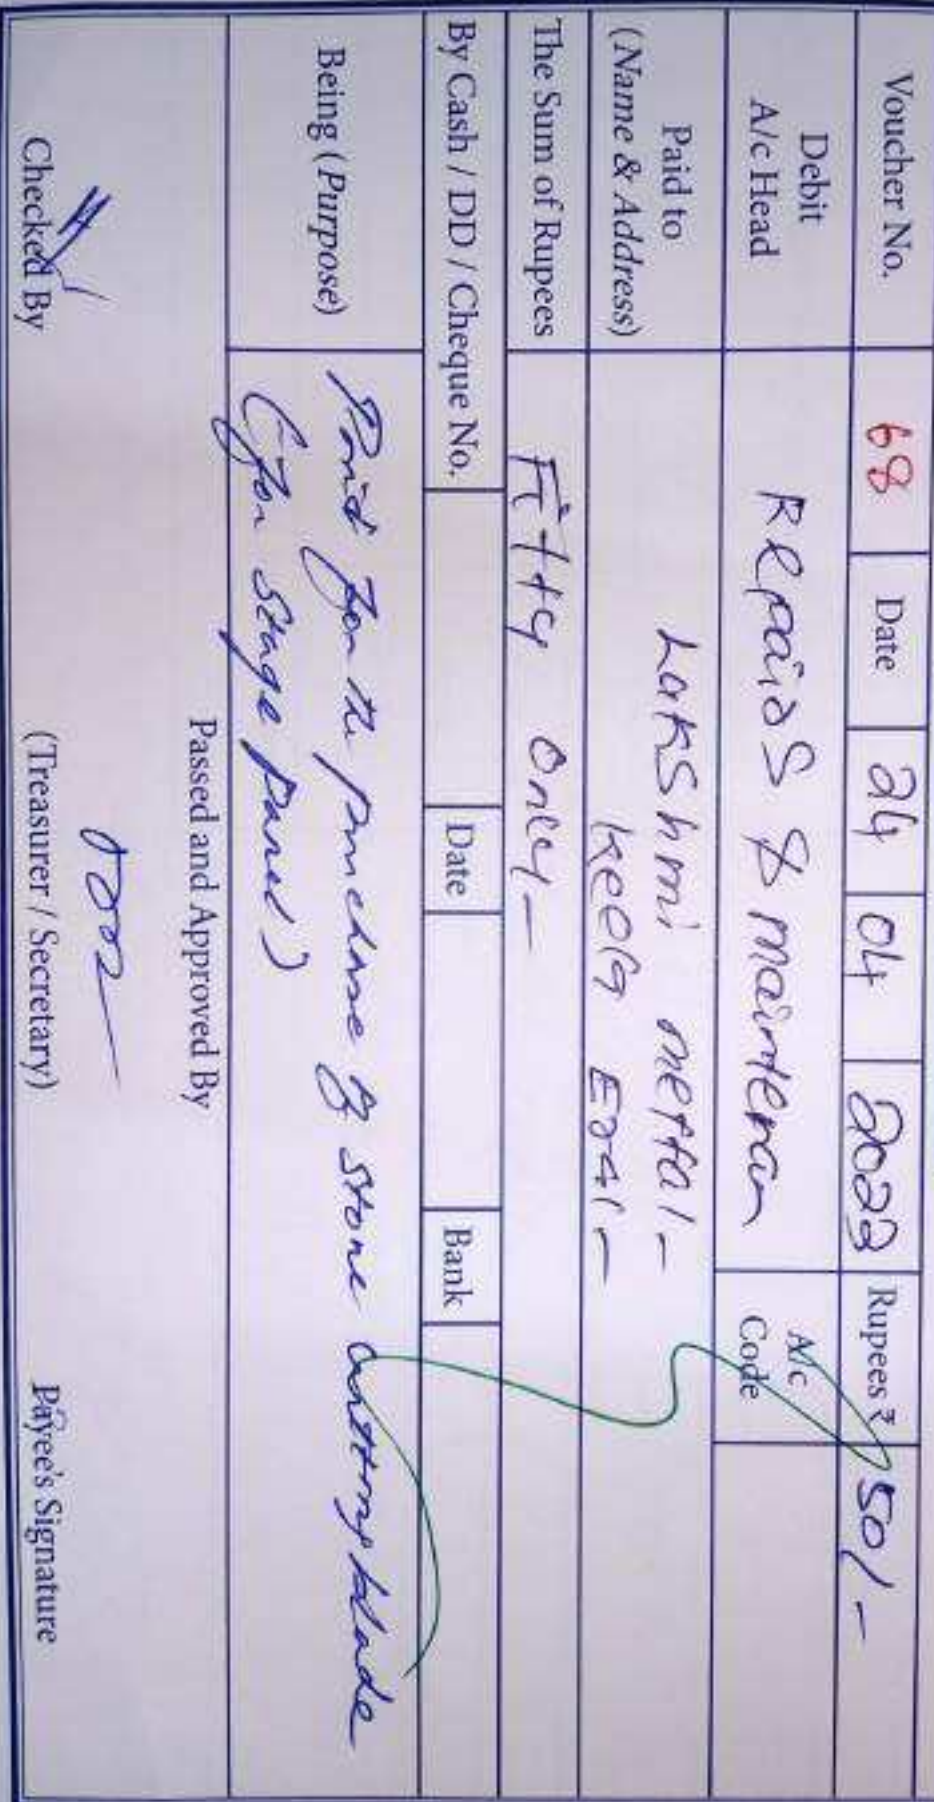 Voucher No. 68 Date 24 04 2023 Rupees ₹ 50/-
Debit A/c Head Repairs & maintenan A/c Code
Paid to (Name & Address) Lakshmi mettal -
Keela Eral -
The Sum of Rupees Fifty Only -
By Cash / DD / Cheque No. Date Bank
Being (Purpose) Paid for the purchase of stone cutting blade
(for stage panel)
Passed and Approved By
Checked By (Treasurer / Secretary) Payee's Signature